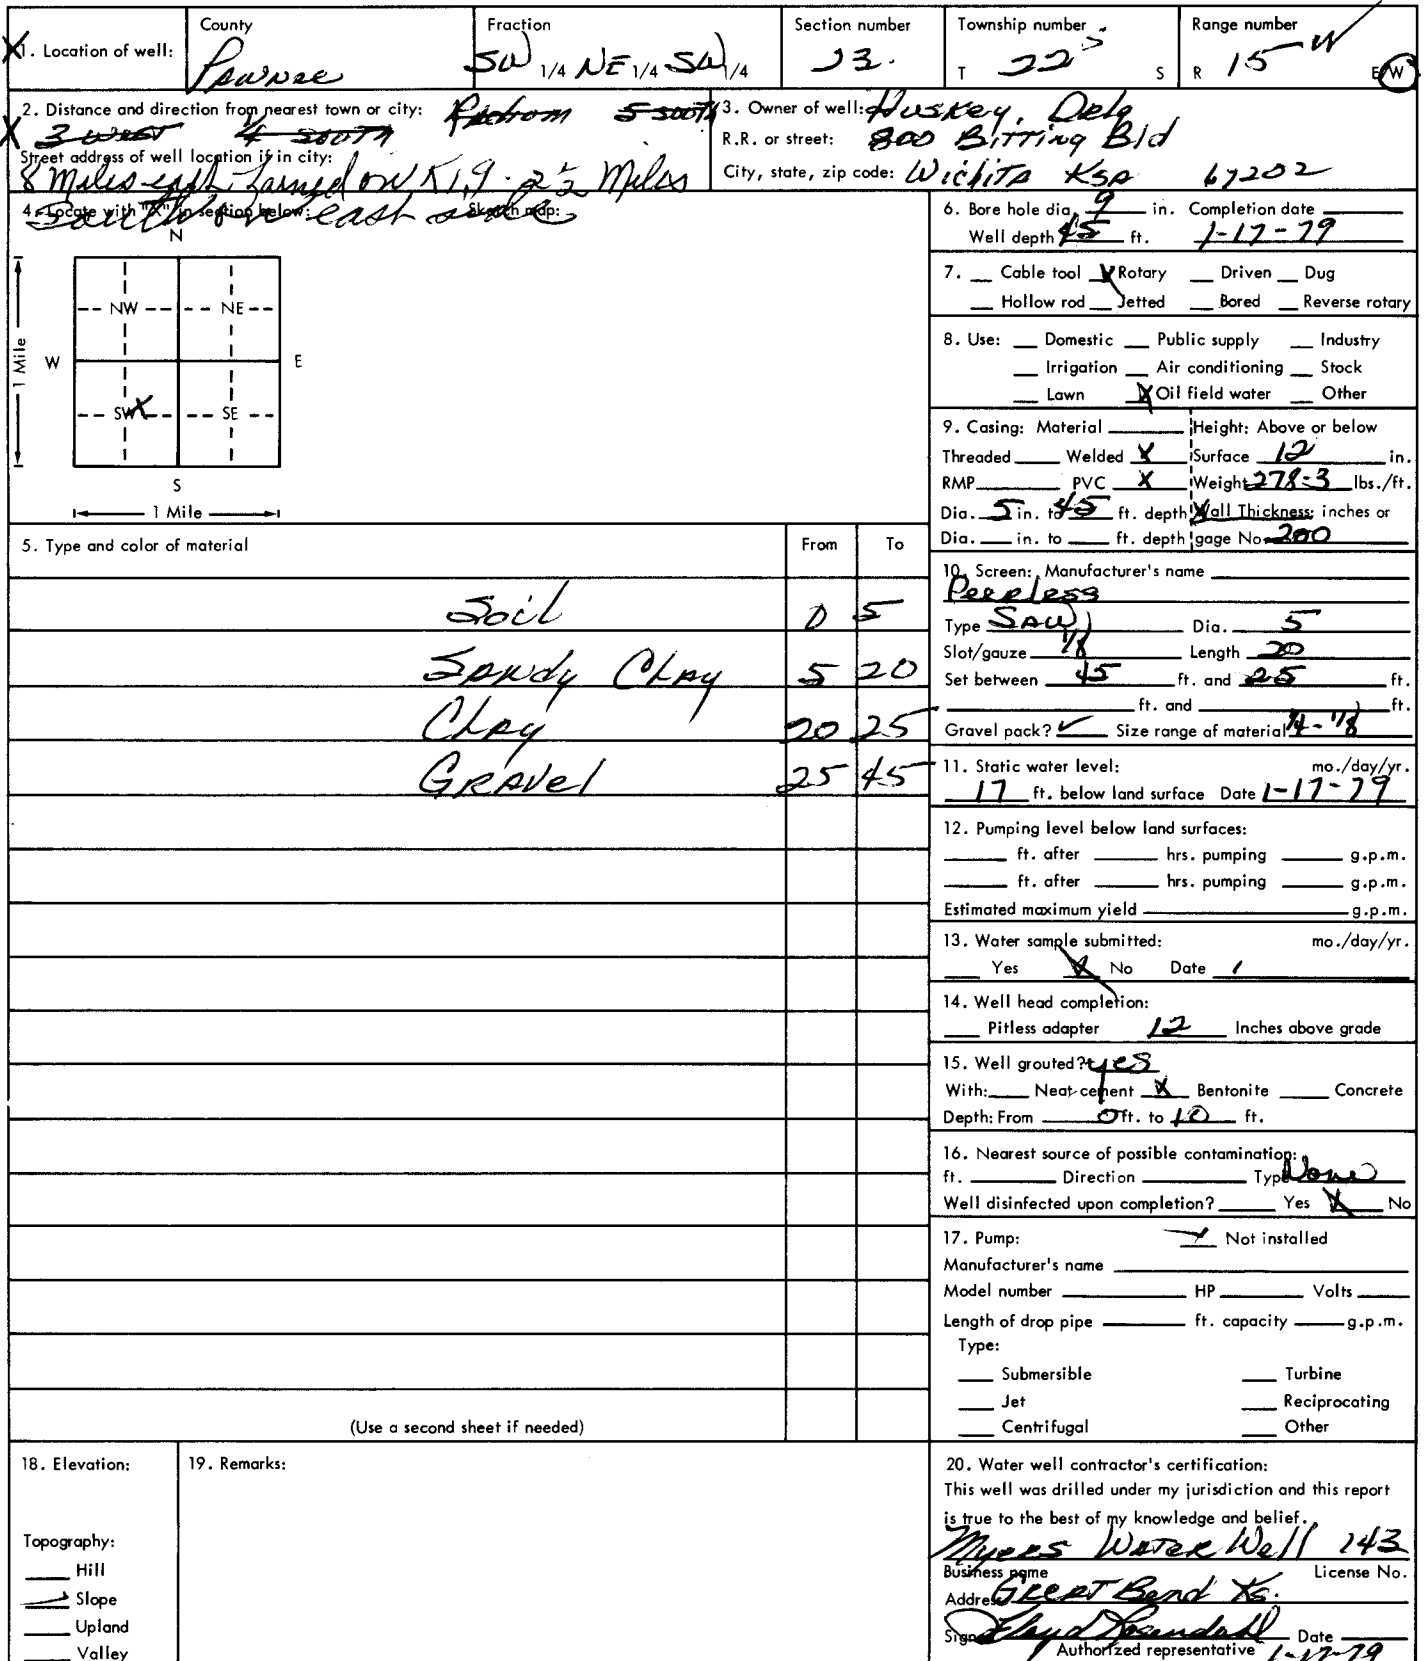 County Fraction Section number Township number Range number
X 1. Location of well: Pawnee SW 1/4 NE 1/4 SW 1/4 23. T 22 S S R 15 W E/W
2. Distance and direction from nearest town or city: 5 South
X 3 West 4 South
Street address of well location if in city:
8 Miles east Larned on K19 - 2 1/2 Miles
South on east side
3. Owner of well: Huskey, Dele
R.R. or street: 800 Bitting Bld
City, state, zip code: Wichita Ksa 67202
4. Locate with "X" in section below: Sketch map:
N
NW NE
W E
SW X SE
S
1 Mile
1 Mile
5. Type and color of material From To
Soil 0 5
Sandy Clay 5 20
Clay 20 25
Gravel 25 45
(Use a second sheet if needed)
6. Bore hole dia. 9 in. Completion date
Well depth 45 ft. 1-17-79
7. Cable tool X Rotary Driven Dug
Hollow rod Jetted Bored Reverse rotary
8. Use: Domestic Public supply Industry
Irrigation Air conditioning Stock
Lawn X Oil field water Other
9. Casing: Material Height: Above or below
Threaded Welded X Surface 12 in.
RMP PVC X Weight 278-3 lbs./ft.
Dia. 5 in. to 45 ft. depth Wall Thickness: inches or
Dia. in. to ft. depth gage No. 200
10. Screen: Manufacturer's name
Peerless
Type SAW Dia. 5
Slot/gauze 1/8 Length 20
Set between 45 ft. and 25 ft.
ft. and ft.
Gravel pack? ✓ Size range of material 1/4-1/8
11. Static water level: mo./day/yr.
17 ft. below land surface Date 1-17-79
12. Pumping level below land surfaces:
ft. after hrs. pumping g.p.m.
ft. after hrs. pumping g.p.m.
Estimated maximum yield g.p.m.
13. Water sample submitted: mo./day/yr.
Yes X No Date /
14. Well head completion:
Pitless adapter 12 Inches above grade
15. Well grouted? yes
With: Neat cement X Bentonite Concrete
Depth: From 0 ft. to 10 ft.
16. Nearest source of possible contamination:
ft. Direction Type None
Well disinfected upon completion? Yes X No
17. Pump: ✓ Not installed
Manufacturer's name
Model number HP Volts
Length of drop pipe ft. capacity g.p.m.
Type:
Submersible Turbine
Jet Reciprocating
Centrifugal Other
18. Elevation:
Topography:
Hill
✓ Slope
Upland
Valley
19. Remarks:
20. Water well contractor's certification:
This well was drilled under my jurisdiction and this report
is true to the best of my knowledge and belief.
Myers Water Well 143
Business name License No.
Address Great Bend Ks.
Signed Floyd Rosendahl Date
Authorized representative 1-17-79